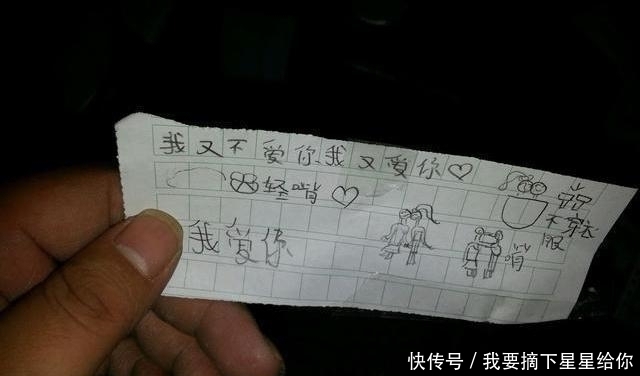 我又不爱你我又爱你♡
轻啃♡
不穿衣服
我爱你
啃
快传号/我要摘下星星给你